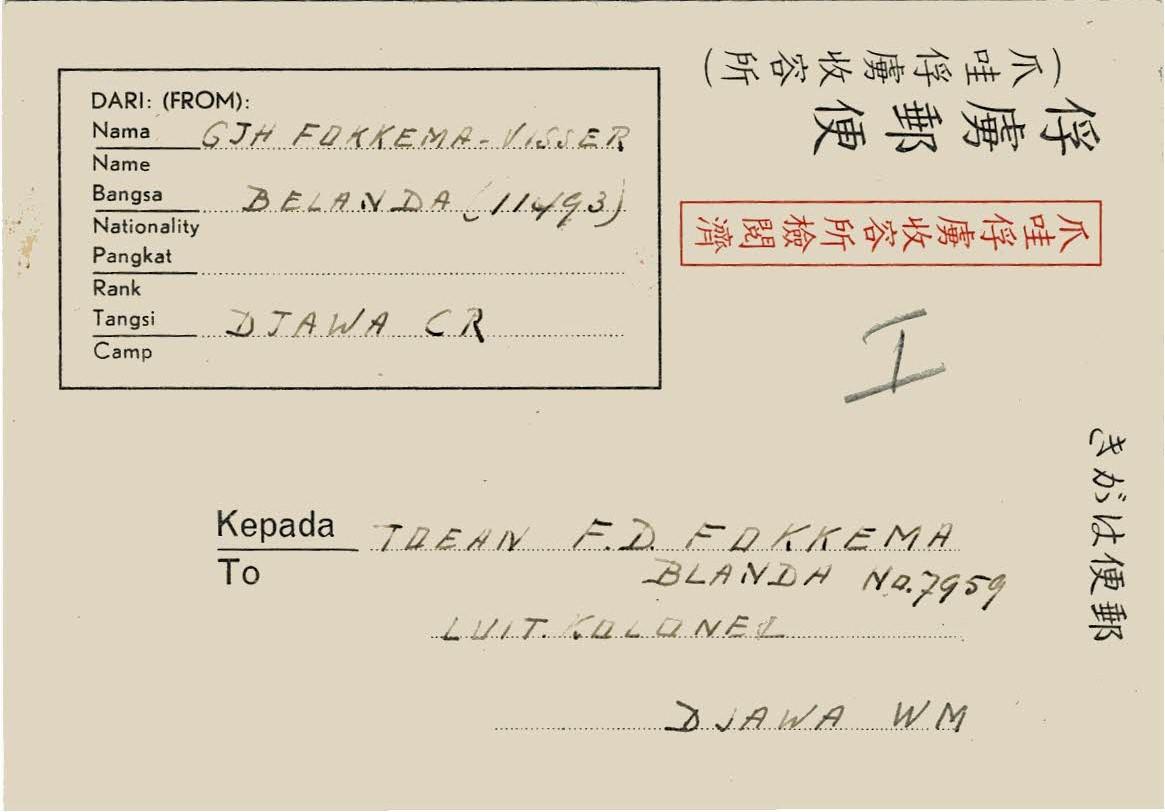 DARI: (FROM):
Nama GJH FOKKEMA-VISSER
Name
Bangsa BELANDA (11493)
Nationality
Pangkat
Rank
Tangsi DJAWA CR
Camp
（爪哇俘虜收容所）
俘虜郵便
爪哇俘虜收容所檢閲濟
I
きがは便郵
Kepada TOEAN F.D. FOKKEMA
To BLANDA No.7959
LUIT. KOLONEL
DJAWA WM